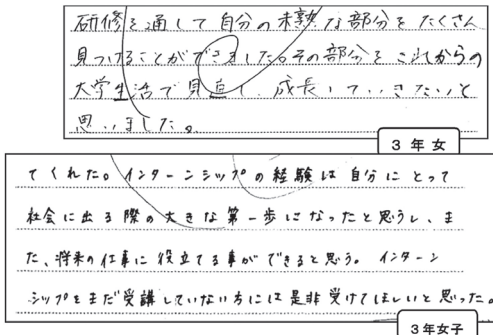 研修を通して自分の未熟な部分をたくさん
見つけることができました。その部分をこれからの
大学生活で見直し、成長していきたいと
思いました。
3年女
てくれた。インターンシップの経験は自分にとって
社会に出る際の大きな第一歩になったと思うし、ま
た、将来の仕事に役立てる事ができると思う。インターン
シップをまだ受講していない方には是非受けてほしいと思った。
3年女子